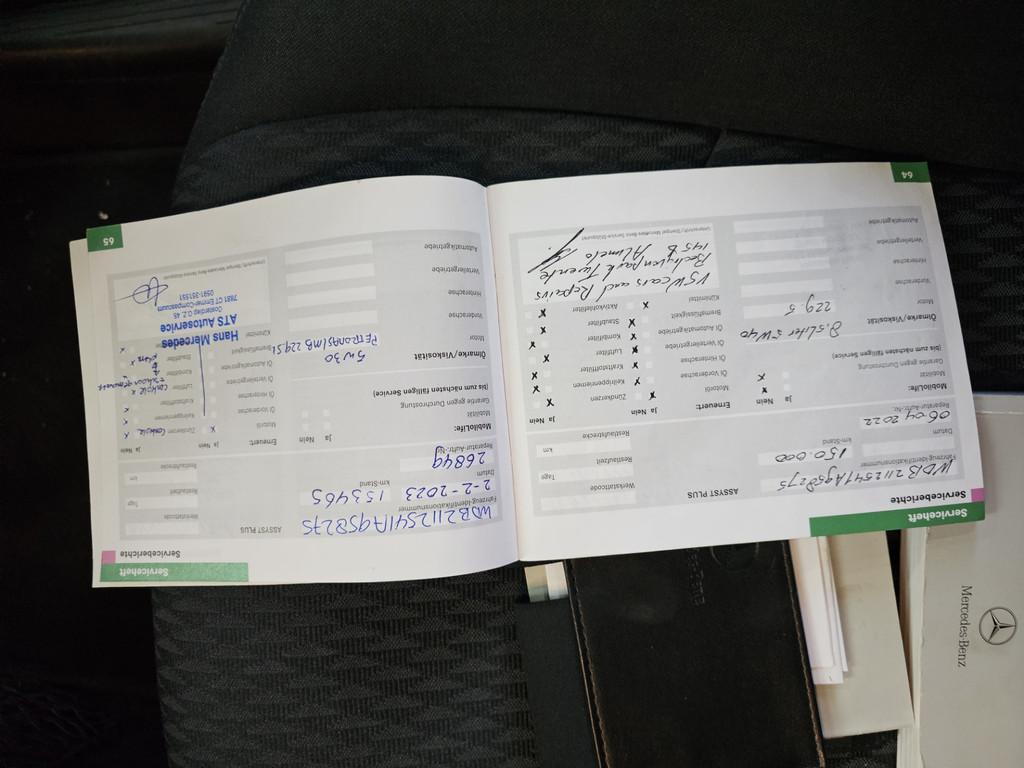 Serviceheft
Serviceberichte
Fahrzeug-Identifikationsnummer
WDB2112541A958275
ASSYST PLUS
Datum
km-Stand
06 04 2022
150.000
Werkstattcode
Restlaufzeit
Tage
Reparatur-Auftr.-Nr.
Restlaufstrecke
km
MobiloLife:
Ja
Nein
Erneuert:
Ja
Nein
Ja
Nein
Mobilität
Garantie gegen Durchrostung
(bis zum nächsten fälligen Service)
Motoröl
Zündkerzen
Öl Vorderachse
Keilrippenriemen
Öl Hinterachse
Kraftstofffilter
Öl Verteilergetriebe
Luftfilter
Öl Automatikgetriebe
Kombifilter
Bremsflüssigkeit
Staubfilter
Kühlmittel
Aktivkohlefilter
Ölmarke/Viskosität
8.5 liter 5W40
Motor
229 5
Vorderachse
Hinterachse
Verteilergetriebe
Automatikgetriebe
VSW cars and Repairs
Bedrijvenpark Twente
145 B Almelo
Unterschrift / Stempel Mercedes-Benz Service-Stützpunkt
64
Serviceheft
Serviceberichte
Fahrzeug-Identifikationsnummer
WDB2112541A958275
ASSYST PLUS
Datum
km-Stand
2-2-2023
153465
Werkstattcode
Restlaufzeit
Tage
Reparatur-Auftr.-Nr.
26849
Restlaufstrecke
MobiloLife:
Ja
Nein
Erneuert:
Ja Nein
Ja Nein
Mobilität
Garantie gegen Durchrostung
(bis zum nächsten fälligen Service)
Motoröl
Zündkerzen
Controle
Öl Vorderachse
Keilrippenriemen
Öl Hinterachse
Öl Verteilergetriebe
Luftfilter
Controle
Öl Automatikgetriebe
Bremsflüssigkeit
Staubfilter
Kühlmittel
Ölmarke/Viskosität
5W30
Motor
PETRONAS (MB 229.51
Vorderachse
Hinterachse
Verteilergetriebe
Automatikgetriebe
Hans Mercedes
ATS Autoservice
Oosterdiep O.Z. 45
7881 CT Emmer-Compascuum
0591-351551
Unterschrift / Stempel Mercedes-Benz Service-Stützpunkt
65
Mercedes-Benz